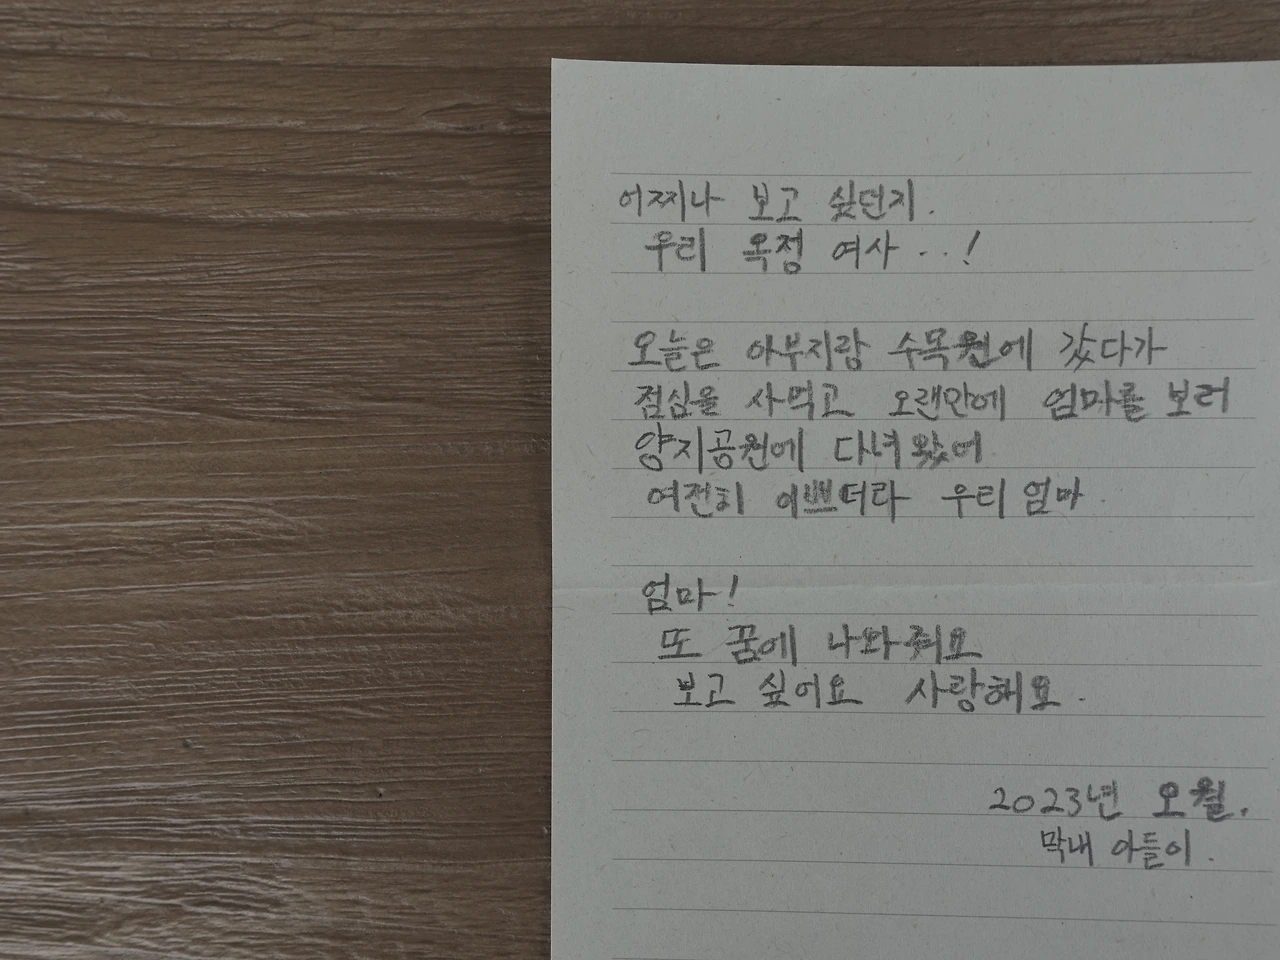 어찌나 보고 싶던지.
우리 옥정 여사...!
오늘은 아부지랑 수목원에 갔다가
점심을 사먹고 오랜만에 엄마를 보러
양지공원에 다녀왔어
여전히 이쁘더라 우리 엄마.
엄마!
또 꿈에 나와줘요
보고 싶어요 사랑해요.
2023년 오월.
막내 아들이.